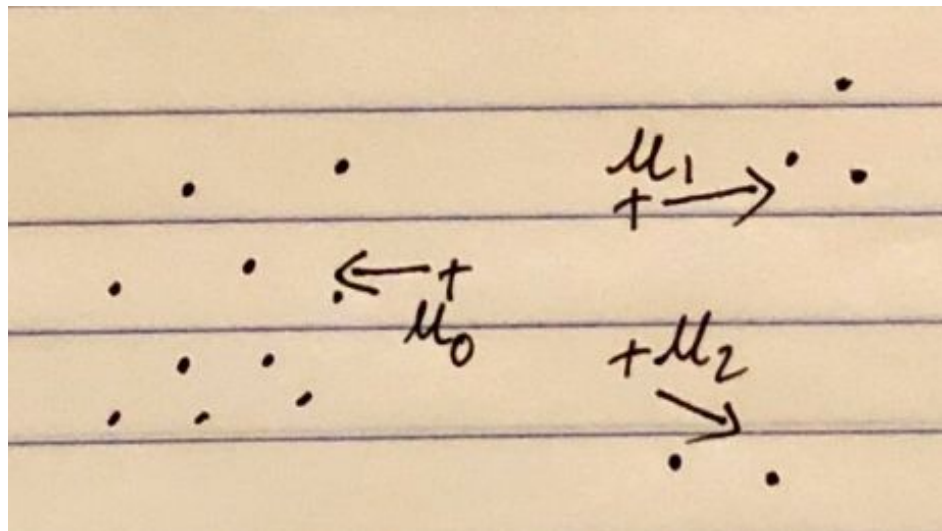 μ₁
+
+
μ₀
+μ₂